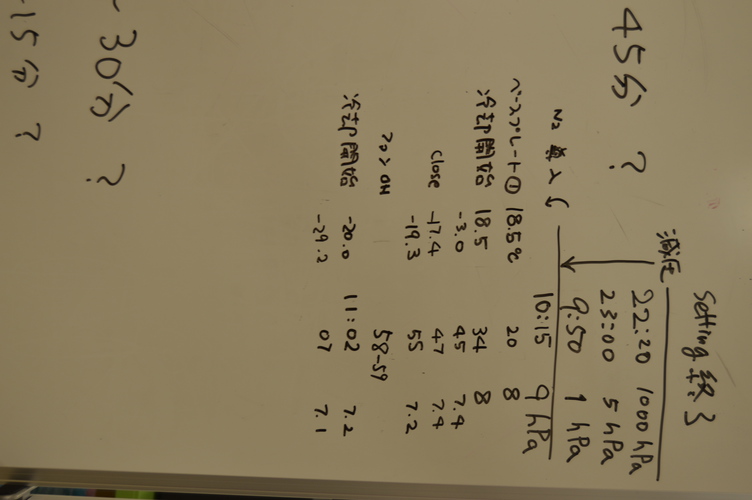 Setting 終了
減圧 22:20 1000hPa
23:00 5hPa
9:50 1 hPa
45分 ?
N2 10:15 9 hPa
ベースプレート① 18.5℃ 20 8
冷却開始 18.5 34 8
-3.0 45 7.4
close -17.4 47 7.4
-19.3 55 7.2
ON 58-59
冷却開始 -20.0 11:02 7.2
-29.2 07 7.1
-30分 ?
-15分 ?